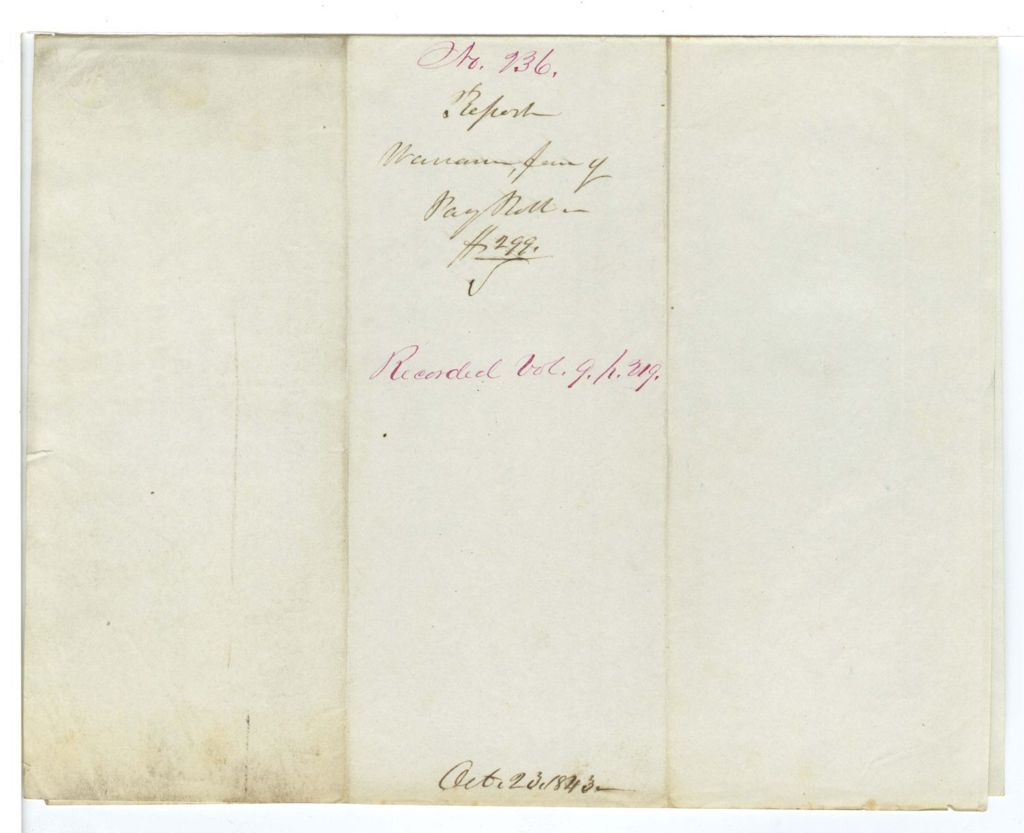 No. 936.
Report
Pay Roll
$299.
Recorded Vol. 9. p. 319.
Oct. 23. 1843.